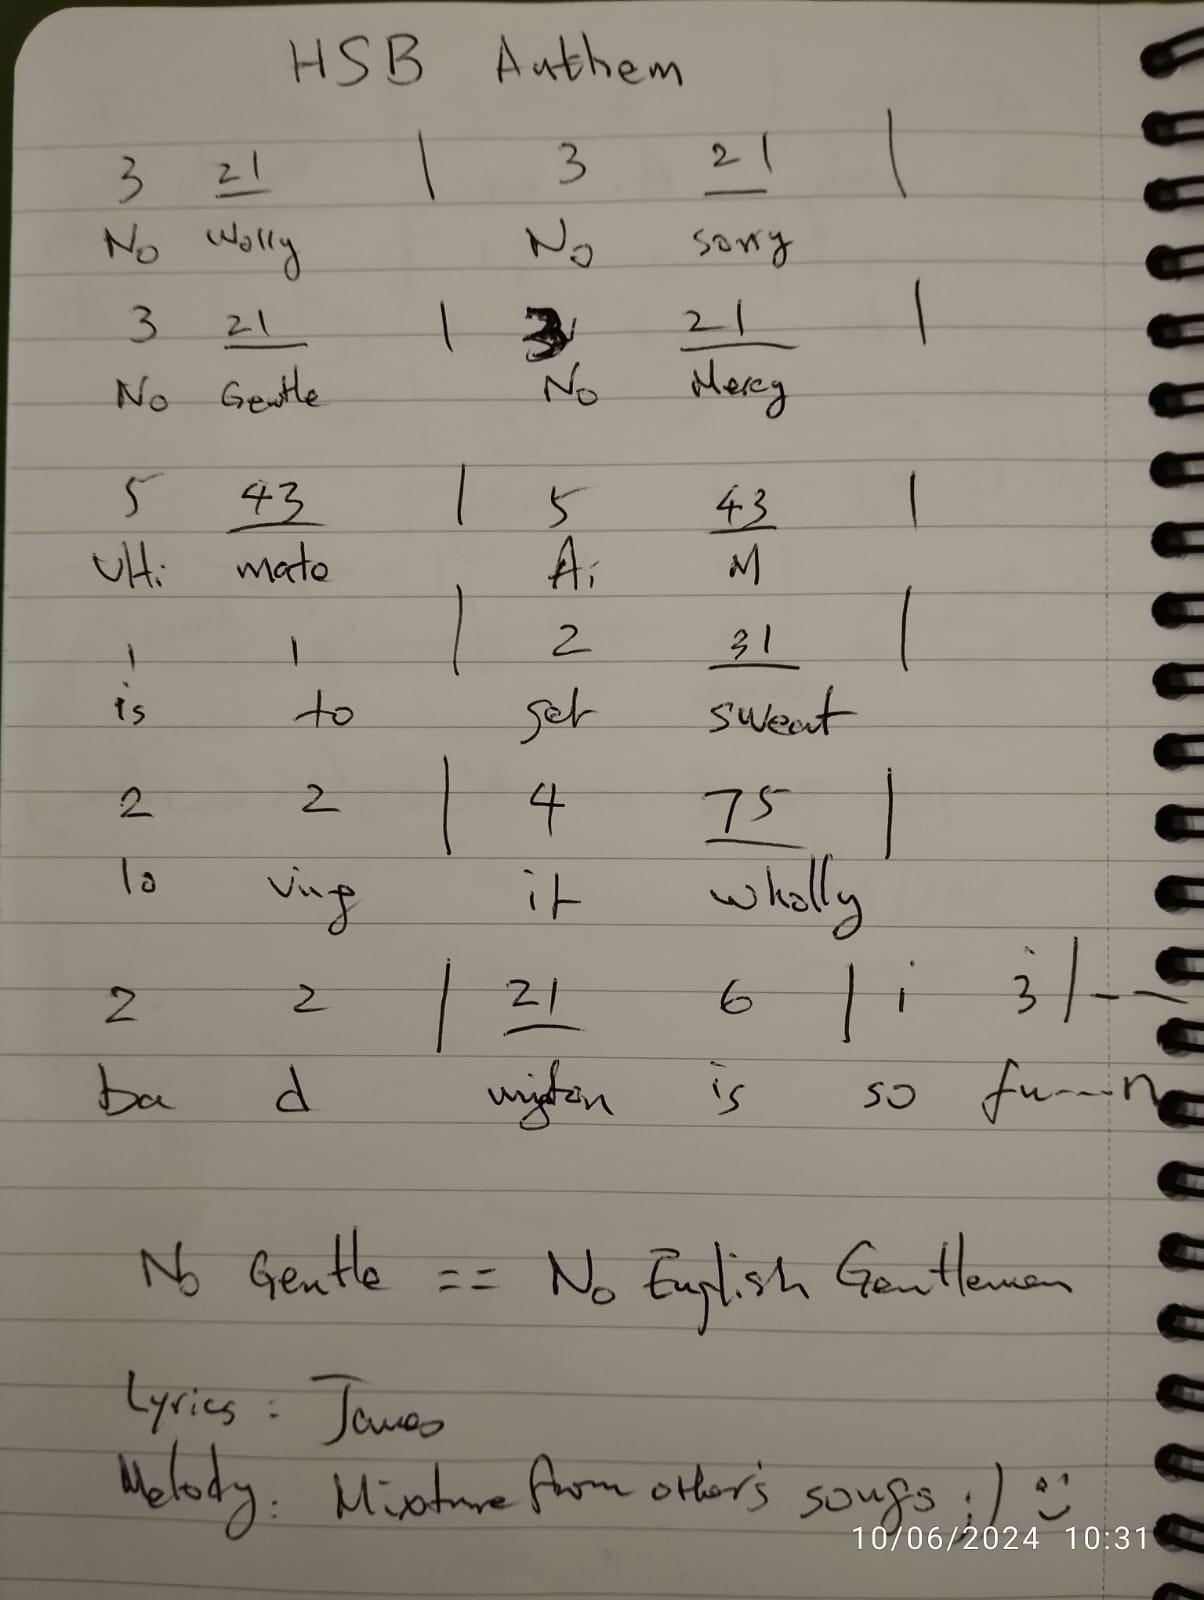 HSB Anthem
3 21 | 3 21 |
No Wolly No sorry
3 21 | 3 21 |
No Gentle No Mercy
5 43 | 5 43 |
Ulti mate Ai M
1 1 | 2 31 |
is to get sweat
2 2 | 4 75 |
lo ving it wholly
2 2 | 21 6 | i 3 | - -
ba d mighton is so fu----n
No Gentle == No English Gentleman
Lyrics: James
Melody: Mixture from other's songs :) ü
10/06/2024 10:31